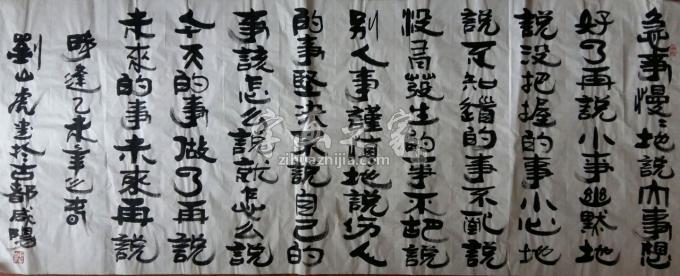 急事慢々地說大事想
好了再說小事幽默地
說没把握的事小心地
說不知道的事不亂說
没有發生的事不胡說
别人事謹慎地說伤人
的事堅决不說自己的
事該怎么說就怎么說
今天的事做了再說
未來的事未來再說
時逢乙未年之春
劉山虎書於古都咸陽
字画之家
zihuazhijia.com